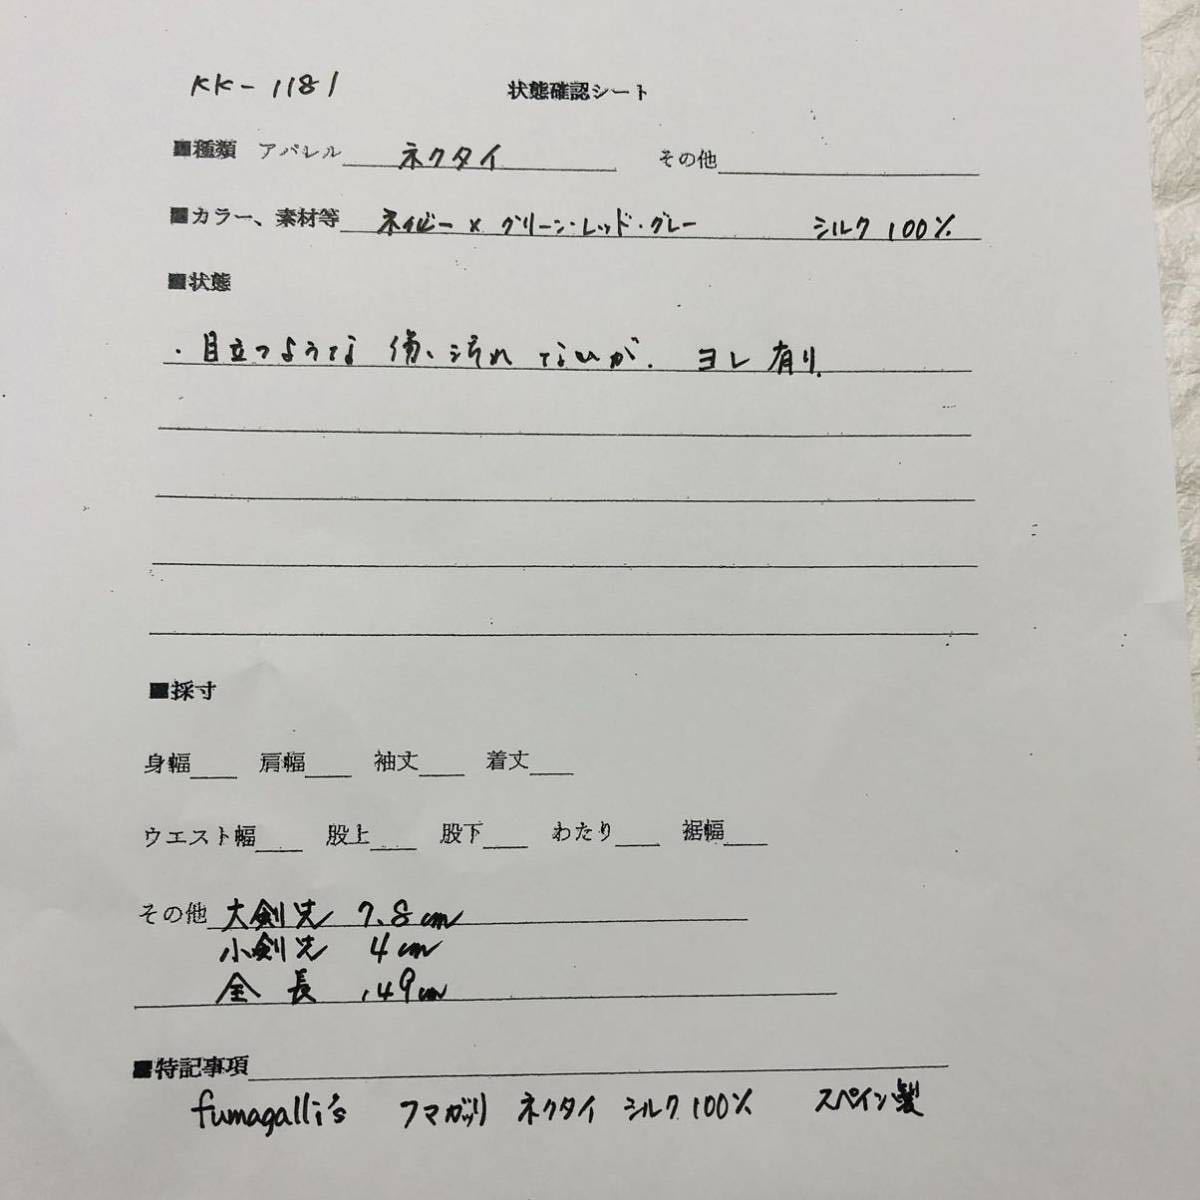 KK-1181 状態確認シート
■種類 アパレル ネクタイ その他
■カラー、素材等 ネイビー×グリーン・レッド・グレー シルク100%
■状態
・目立つような傷、汚れてないが、ヨレ有り。
■採寸
身幅 肩幅 袖丈 着丈
ウエスト幅 股上 股下 わたり 裾幅
その他 大剣先 7.8cm
小剣先 4cm
全長 149cm
■特記事項
fumagalli's フマガッリ ネクタイ シルク100% スペイン製